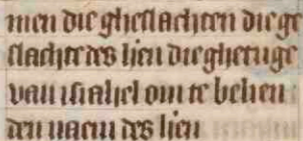 men die gheslachten die ge
slachte des h'en die ghetuge
van israhel om te belien
den naem des h'en